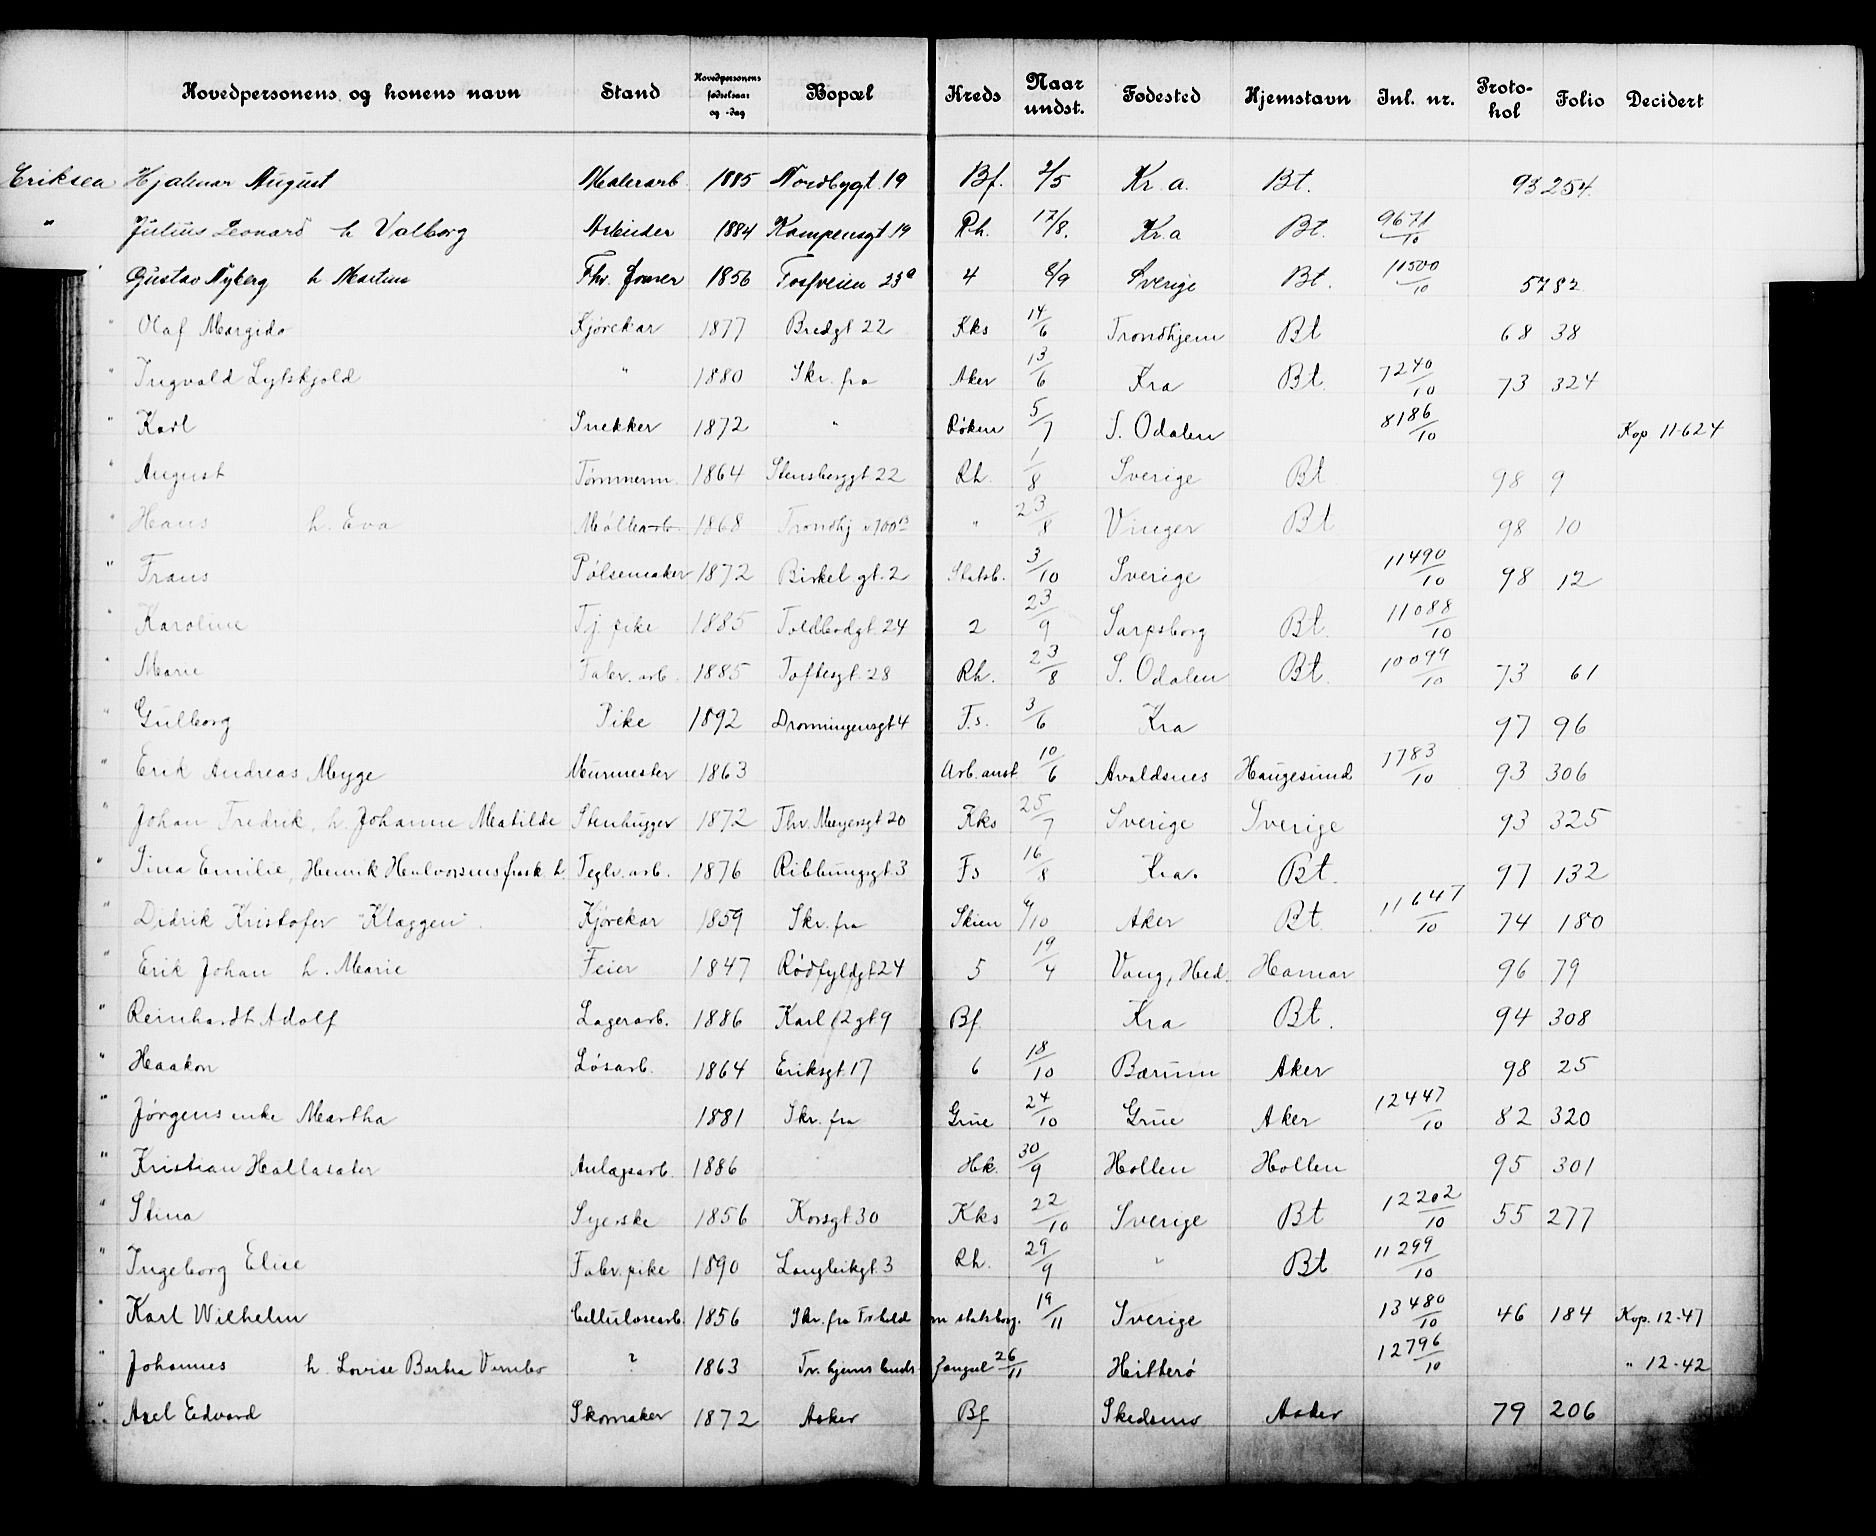 Hovedpersonens og konens navn Stand Hovedpersonens fødselsaar og -dag Bopæl Kreds Naar undst. Fødested Hjemstavn Inl. nr. Protokol Folio Decidert
Eriksen Hjalmar August Malerarb. 1885 Nordbygt. 19 Bf. 2/5 Kr.a. Bt. 93 254.
" Julius Leonard h Valborg Arbeider 1884 Kampensgt 19 Rh. 17/8. Kr.a Bt. 9671/10
" Gustav Nyberg h Martine Fhv. 1856 23a 4 8/9 Sverige Bt. 11500/10 57 82
" Olaf Margido Kjørekar 1877 Bredgt 22 Kks 14/6 Trondhjem Bt 68 38
" Ingvald Lykskjold " 1880 Skr. fra Aker 13/6 Kra Bt. 7240/10 73 324
" Karl Snekker 1872 " Røken 5/7 S. Odalen 8186/10 Kop 11-624
" August Tømmerm. 1864 Stensberggt 22 Rh. 1/8 Sverige Bt 98 9
" Hans h. Eva 1868 Trondhj v 100 B " 23/8 Vinger Bt 98 10
" Frans Pølsemaker 1872 Birkel.gt. 2 Statsb. 3/10 Sverige 11490/10 98 12
" Karoline Tj. pike 1885 Toldbodgt. 24 2 23/9 Sarpsborg Bt. 11088/10
" Marie Fabr. arb. 1885 Toftesgt. 28 Rh. 23/8 S. Odalen Bt. 10099/10 73 61
" Gulborg Pike 1892 Dronningensgt 4 F.s. 3/6 Kra 97 96
" Erik Andreas Myge Murmester 1863 Arb.anst. 10/6 Avaldsnes Haugesund 1783/10 93 306
" Johan Fredrik, h. Johanne Matilde Stenhugger 1872 Thv. Meyersgt 20 Kks 25/7 Sverige Sverige 93 325
" Tina Emilie, Henrik Halvorsens frask. h. Teglv. arb. 1876 Ribbungsgt. 3 Fs 16/8 Kra. Bt. 97 132
" Didrik Kristofer "Klaggen". Kjørekar 1859 Skr. fra Skien /10 Aker Bt. 11647/10 74 180
" Erik Johan h. Marie Feier 1847 Rødfyldgt. 24 5 19/4 Vang, Hed. Hamar 96 79
" Reinhardt Adolf Lagerarb. 1886 Karl 12 gt 9 Bf. Kra Bt. 94 308
" Haakon Løsarb. 1864 Eriksgt. 17 6 18/10 Bærum Aker 98 25
" Jørgens enke Martha 1881 Skr. fra Grue 24/10 Grue Aker 12447/10 82 320
" Kristian Hallasæter Anlægsarb. 1886 Hk. 30/9 Hollen Hollen 95 301
" Stina Syerske 1856 Korsgt 30 Kks 22/10 Sverige Bt 12202/10 55 277
" Ingeborg Elise Fabr. pike 1890 Langleikgt. 3 Rh. 29/9 " Bt 11299/10
" Karl Wilhelm Cellulosearb. 1856 Skr. fra Fr.hald m statsborg. 19/11 Sverige 13480/10 46 184 Kop. 12-47
" Johannes h. Lovise Barbra ? 1863 Tv. hjems. 26/11 Hitterø 12796/10 " 12-42
" Axel Edvard Skomaker 1872 Asker Bf Skedsmo Asker 79 206